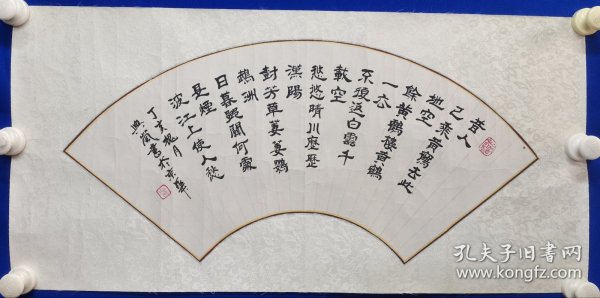 昔人
已乘黃鶴去此
地空
餘黃鶴樓黃鶴
一去
不復返白雲千
載空
悠悠晴川歷歷
漢陽
樹芳草萋萋鸚
鵡洲
日暮鄉關何處
是煙
波江上使人愁
丁亥月
書於京華
孔夫子旧书网
www.kongfz.com